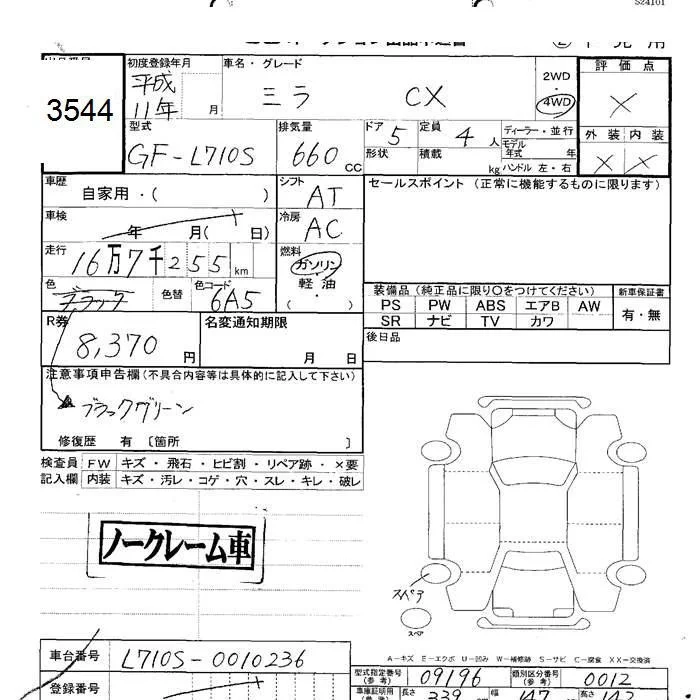 S24101
初度登録年月 車名・グレード 2WD 評価点
平成
11年 月 ミラ CX 4WD ×
3544
型式 排気量 ドア 5 定員 4人 ディーラー・並行 外装 内装
GF-L710S 660cc 形状 積載 kg モデル年式 年 × ×
ハンドル 左・右
車歴 シフト セールスポイント (正常に機能するものに限ります)
自家用・( ) AT
車検 年 月( 日) 冷房 AC
走行 16万7千255km 燃料 ガソリン
軽油
( )
色 ブラック 色替 色コード 6A5
装備品 (純正品に限り○をつけてください) 新車保証書
PS PW ABS エアB AW 有・無
SR ナビ TV カワ
R券 名変通知期限 後日品
8,370円 月 日
注意事項申告欄(不具合内容等は具体的に記入して下さい)
ブラックグリーン
修復歴 有 〔箇所 〕
検査員 FW キズ・飛石・ヒビ割・リペア跡・×要
記入欄 内装 キズ・汚レ・コゲ・穴・スレ・キレ・破レ
ノークレーム車
スペア
スペア
A-キズ E-エクボ U-凹み W-補修跡 S-サビ C-腐食 XX-交換済
車台番号 L710S-0010236
型式指定番号(参考) 09196 類別区分番号(参考) 0012
登録番号
車庫証明用(参考) 長さ 339cm 幅 147 高さ 142